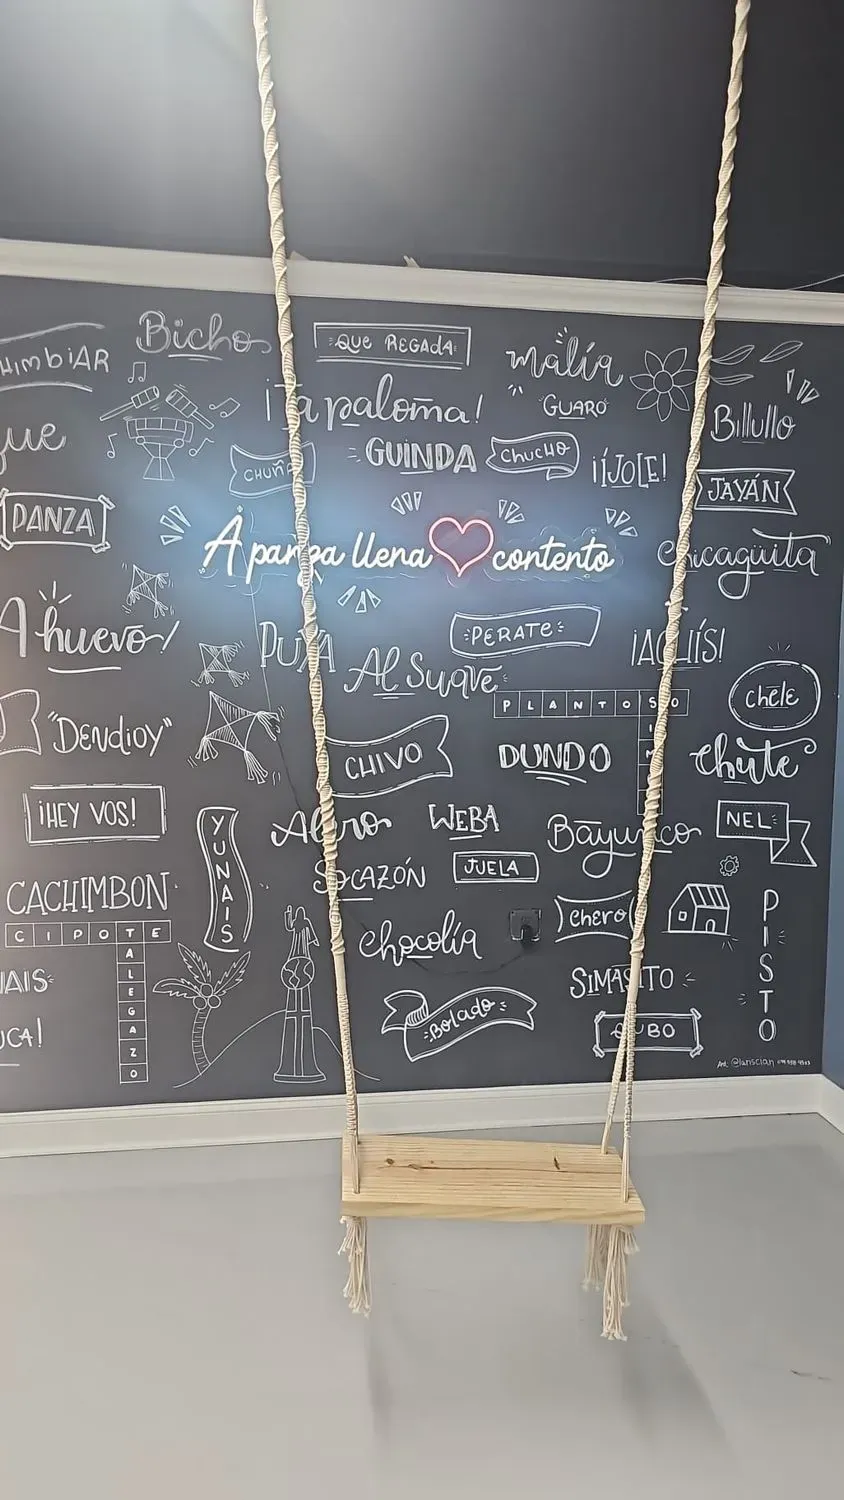 Bicho
QUE REGADA
malía
HIMBIAR
¡Ta paloma!
GUARO
Billullo
que
GUINDA
Chucho
¡¡JOLE!
JAYÁN
PANZA
A panza llena contento
Chicagüita
A huevo!
PUYA
PERATE
¡AQUÍS!
Al Suave
PLANTOSO
chele
"Dendioy"
CHIVO
DUNDO
chute
¡HEY VOS!
YUNAIS
WEBA
Bayunco
NEL
SOCAZÓN
JUELA
CACHIMBON
CIPOTE
TALEGAZO
chocolía
chero
PISTO
SIMASITO
Bolado
UCA!
Art: @lariscian